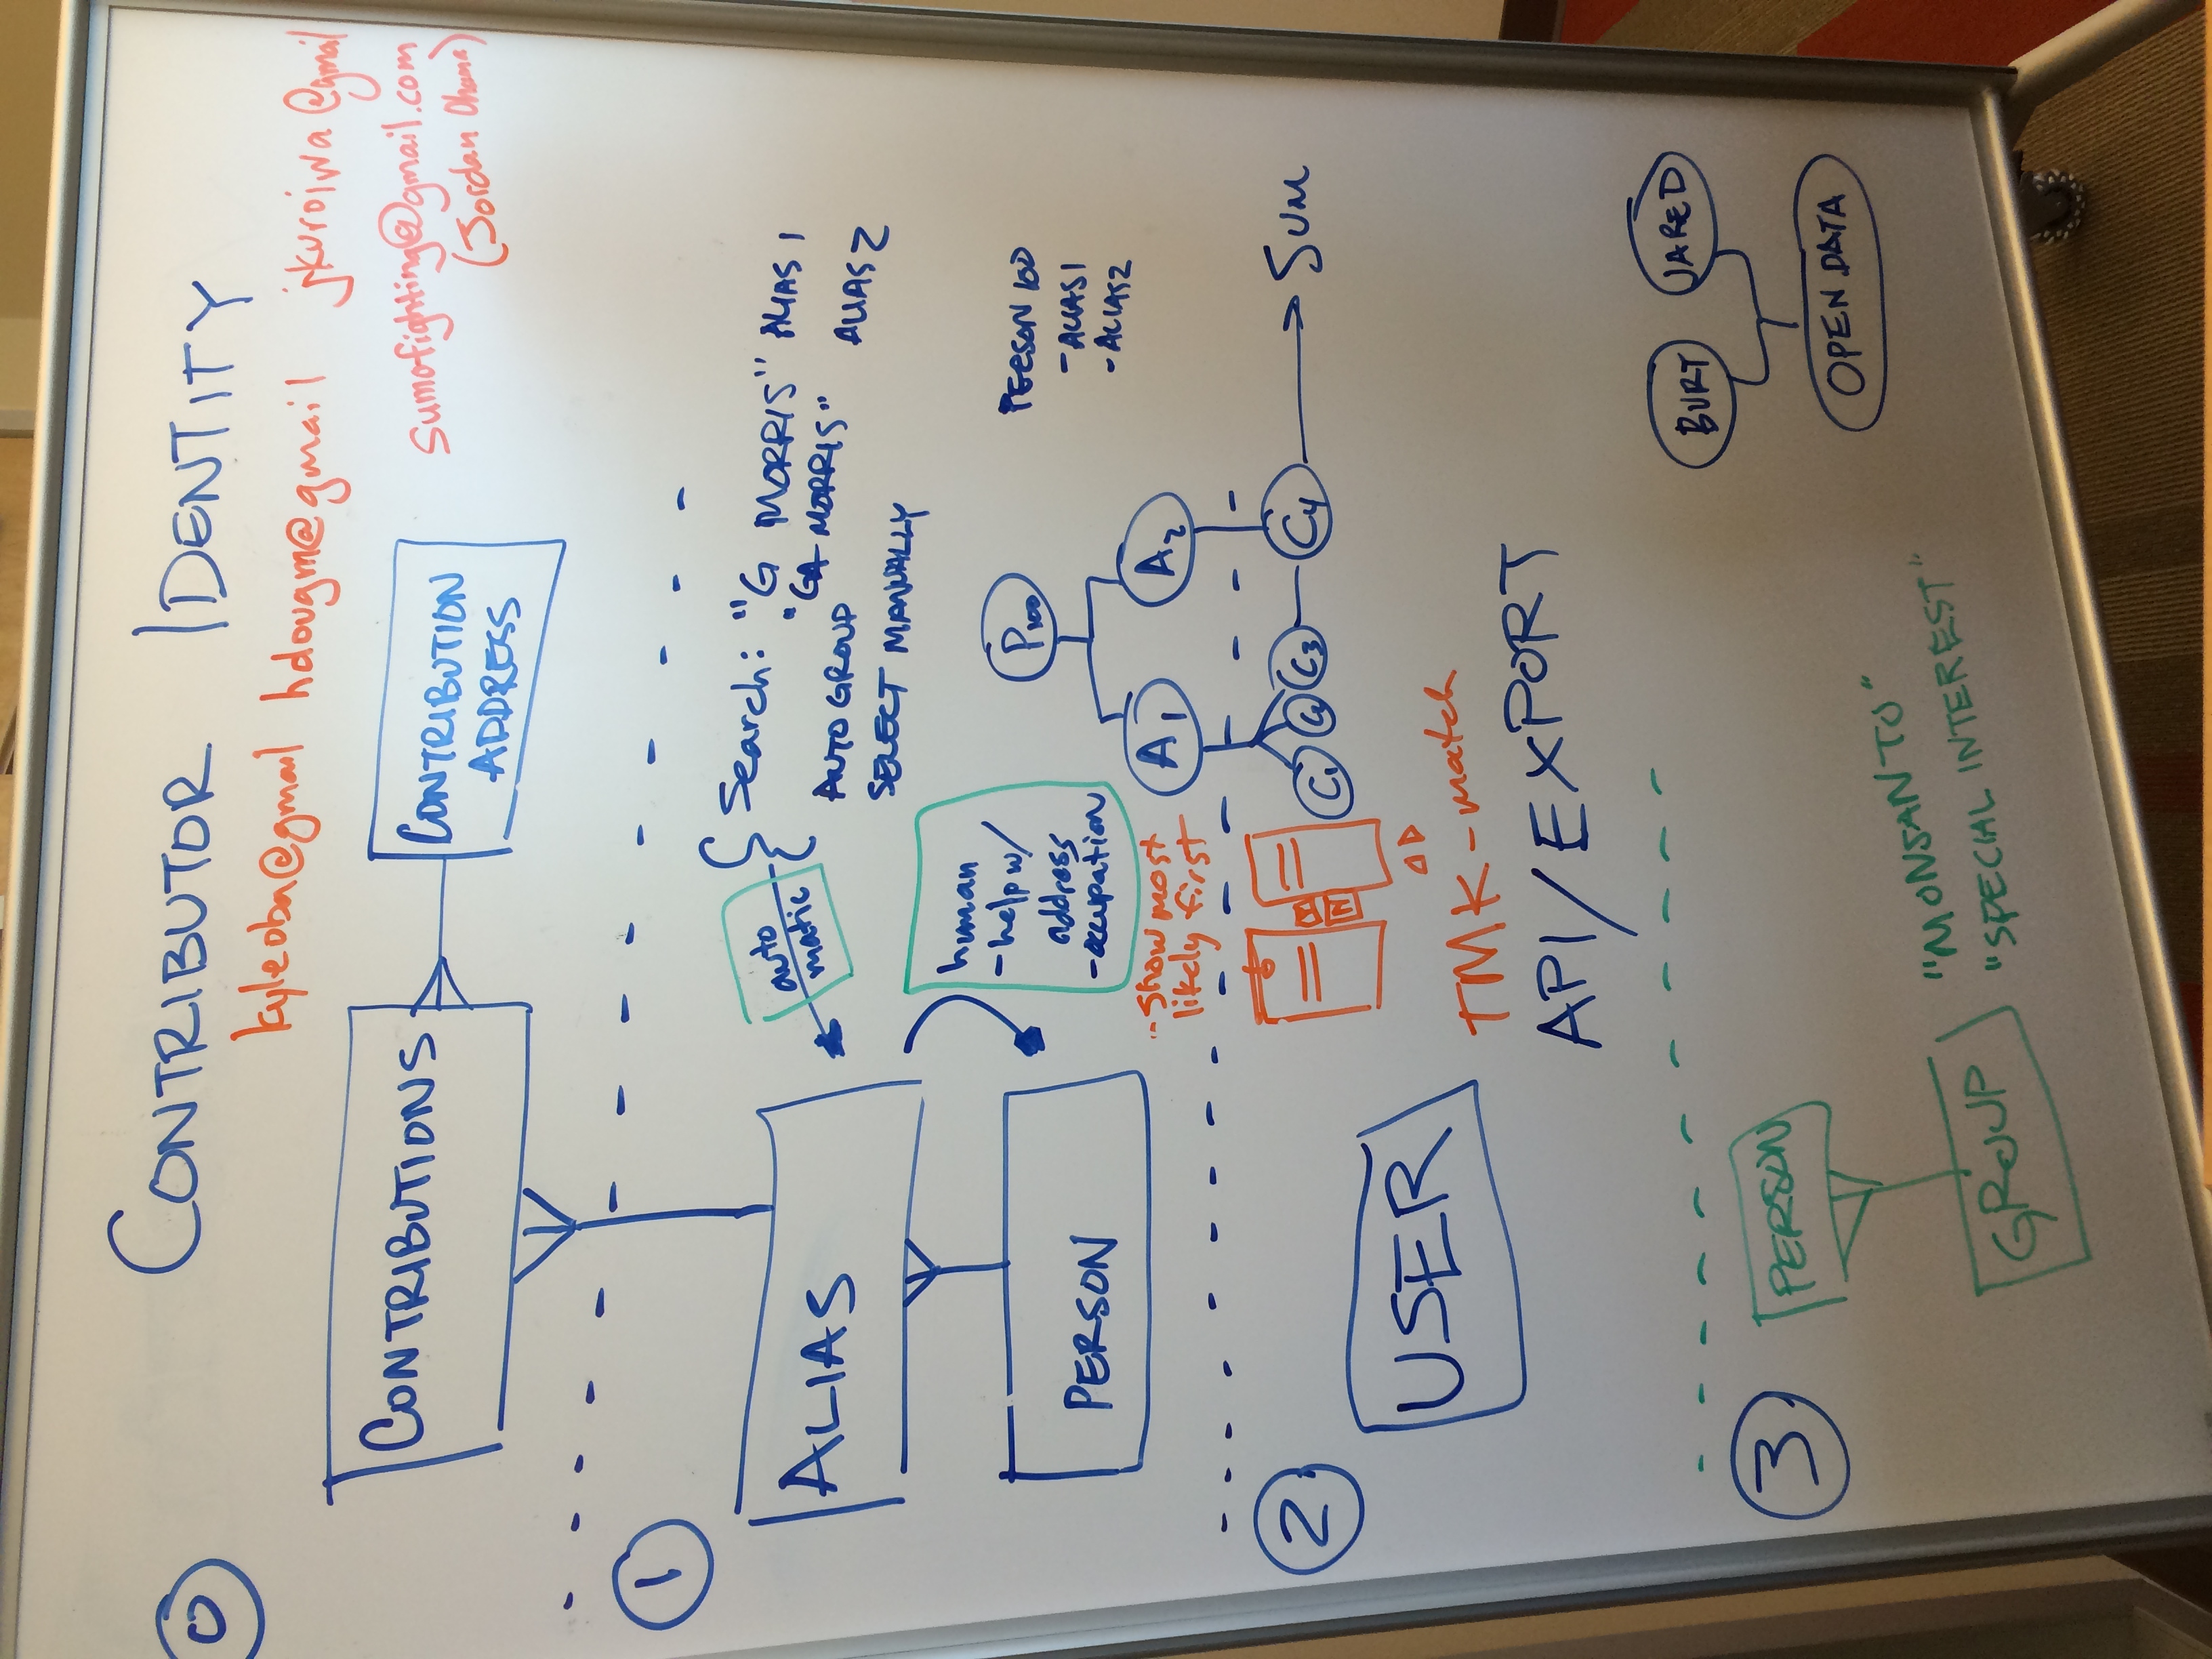 0
CONTRIBUTOR IDENTITY
kyleoba@gmail hdougm@gmail jkuroiwa@gmail
sumofighting@gmail.com
(Jordan Ohama)
CONTRIBUTIONS
CONTRIBUTION
ADDRESS
1
ALIAS
auto
matic
Search: "G MORRIS" ALIAS 1
"GA MORRIS" ALIAS 2
AUTO GROUP
SELECT MANUALLY
human
- help w/
address
- occupation
PERSON
P100
PERSON 100
- ALIAS1
- ALIAS2
A1
A2
- show most
likely first
2
Y
N
C1
C2
C3
C4
SUM
USER
TMK - match
API/EXPORT
3
PERSON
GROUP
"MONSANTO"
"SPECIAL INTEREST"
BURT
JARED
OPEN DATA